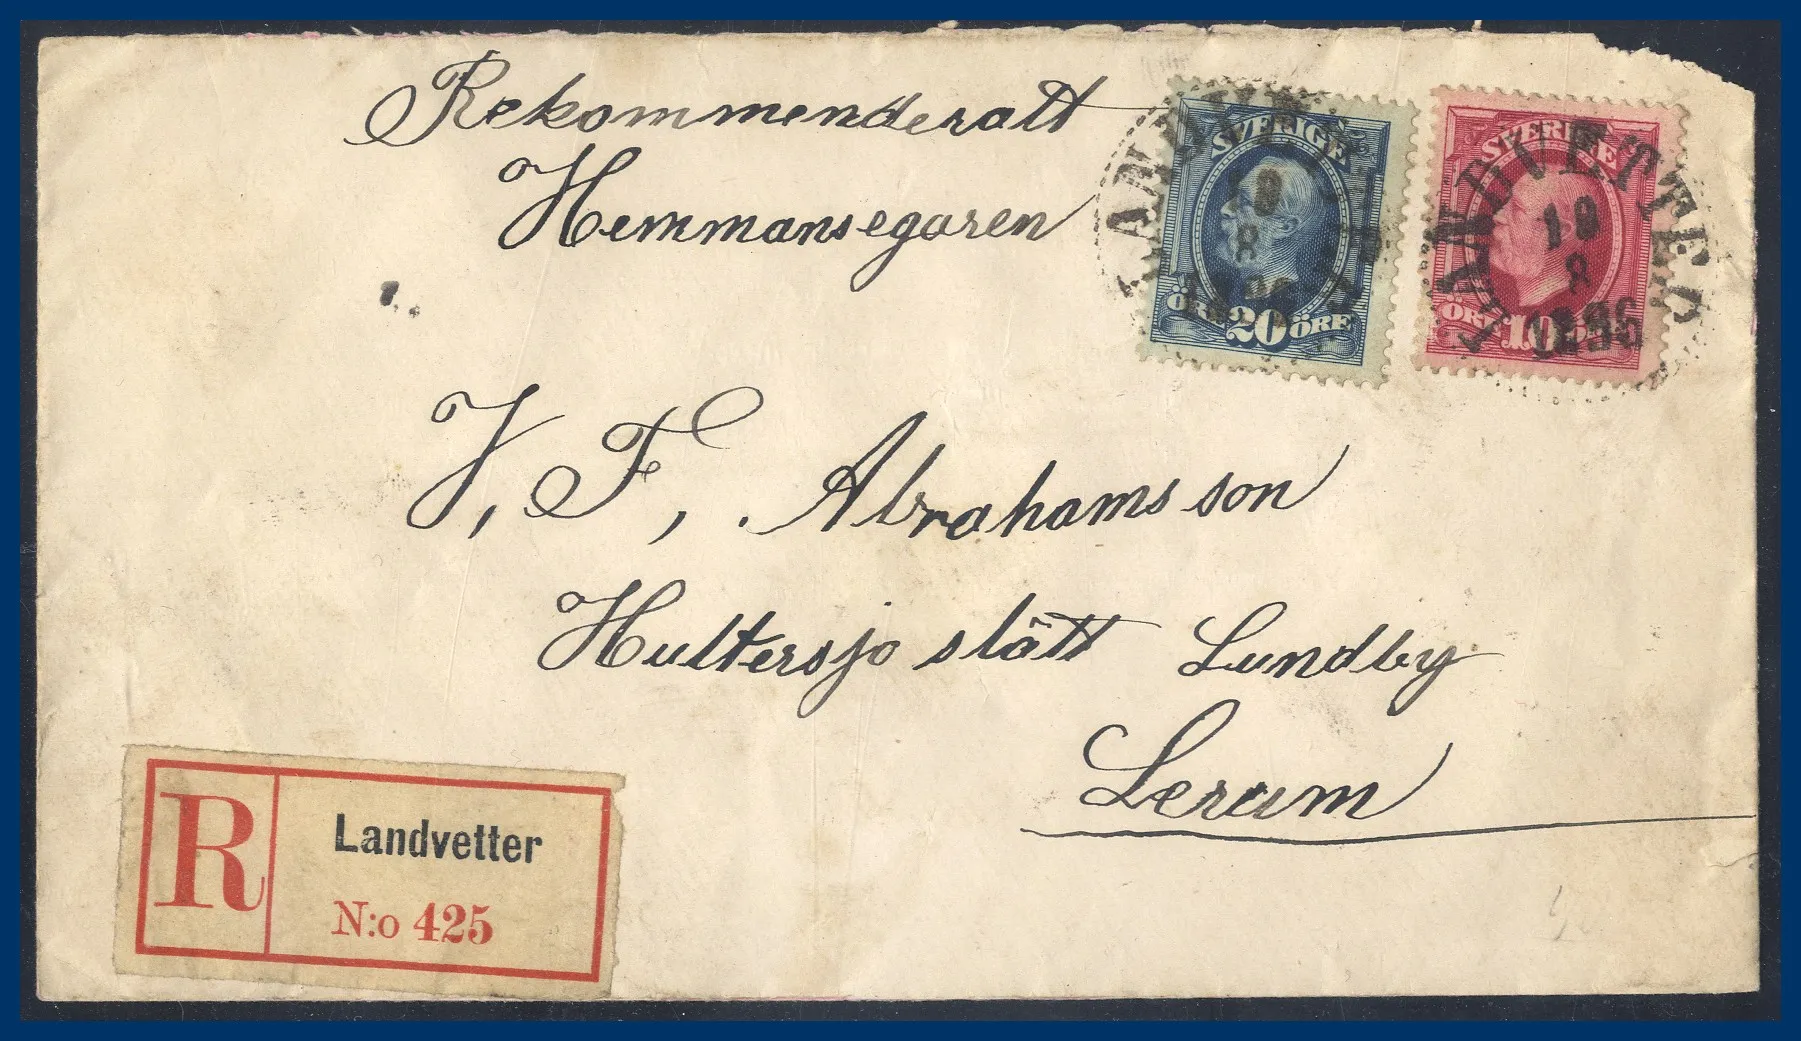 Rekommenderatt
Hemmansegaren
SVERIGE
20
ÖRE 20 ÖRE
SVERIGE
LANDVETTER
10
8
1896
ÖRE 10
V, F, Abrahamsson
Hultersjo slätt Lundby
Lerum
R
Landvetter
N:o 425